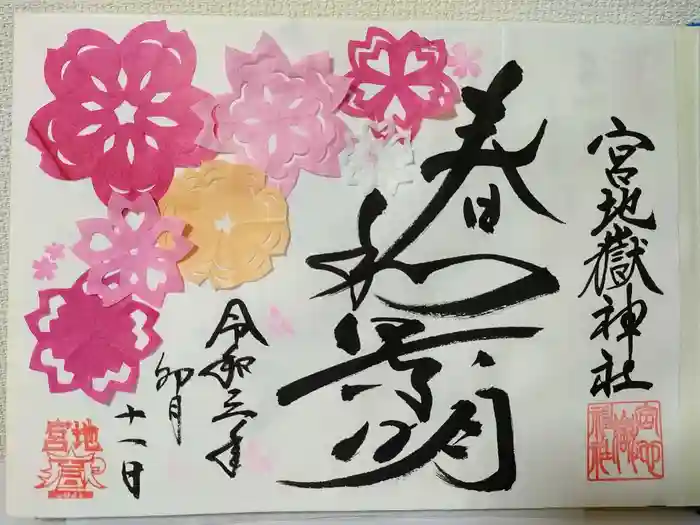 宮地嶽神社
宮地
嶽
神社
春和景明
令和三年
卯月
十一日
宮地
嶽